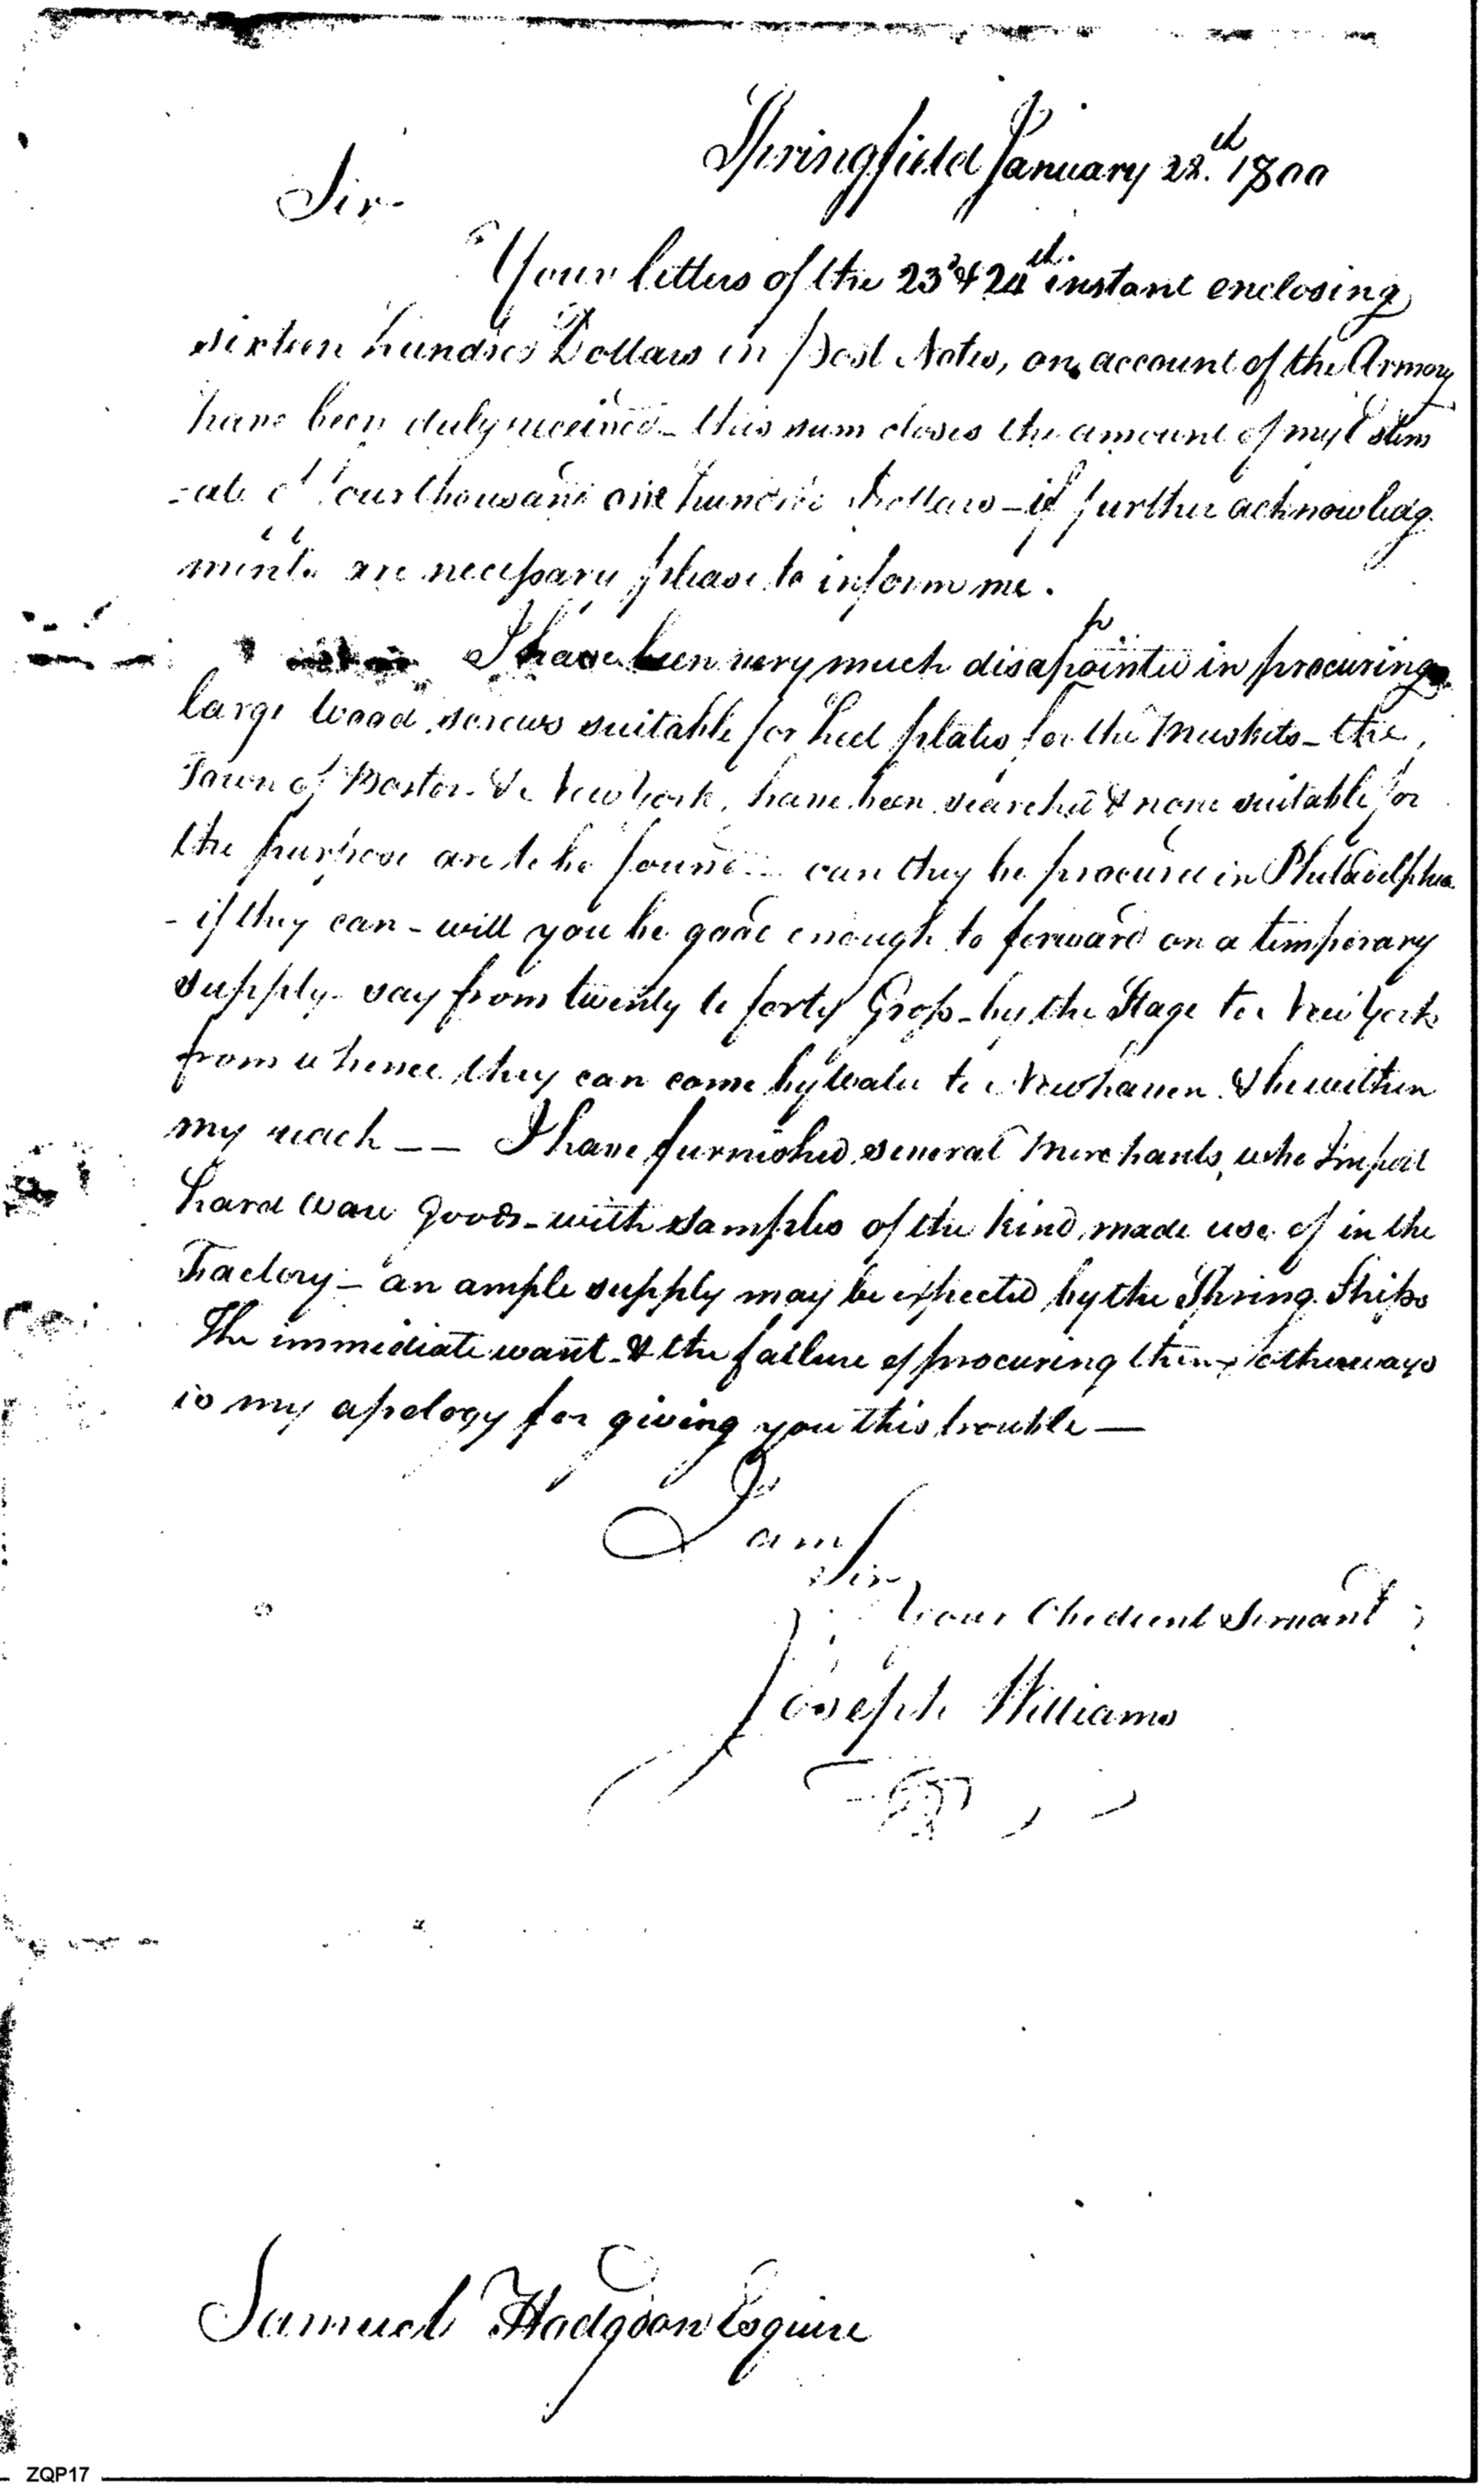 Springfield January 28.th 1800
Sir
Your letters of the 23d & 24th. instant enclosing
sixteen hundred Dollars in post Notes, on account of the Armory
have been duly received - this sum closes the amount of my Estim
-ate of four thousand one hundred Dollars - if further acknowledg
ments are necessary please to inform me.
I have been very much disappointed in procuring
large wood screws suitable for heel plates for the Muskets - the
Town of Boston & New York, have been searched & none suitable for
the purpose are to be found - can they be procured in Philadelphia
- if they can - will you be good enough to forward on a temporary
supply - say from twenty to forty Gross - by the Stage to New York
from whence they can come by Water to Newhaven & be within
my reach - - I have furnished several Merchants, who Import
hard ware goods - with samples of the kind made use of in the
Factory - an ample supply may be expected by the Spring Ships
The immediate want - & the failure of procuring them otherways
is my apology for giving you this trouble -
I am
Sir
Your Obedient Servant
Joseph Williams
Samuel Hodgdon Esquire
ZQP17